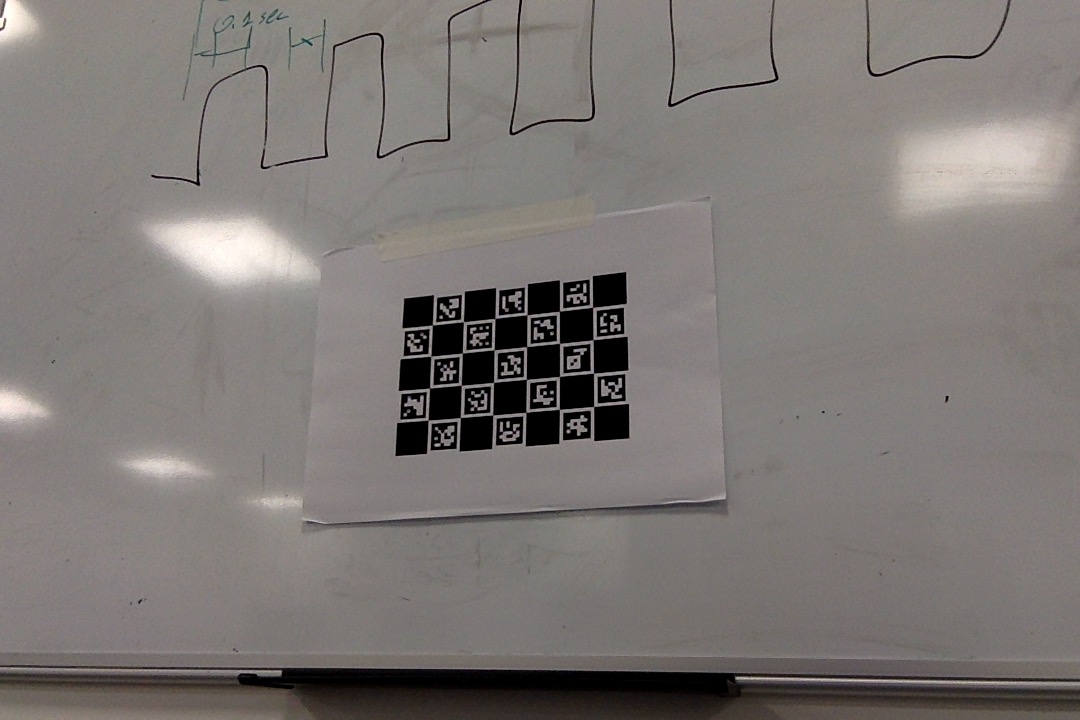 0.1 sec